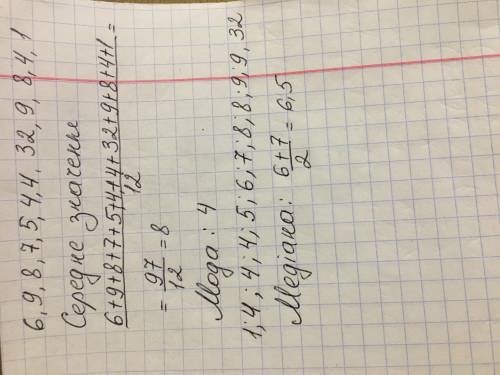 6, 9, 8, 7, 5, 4, 4. 32, 9, 8, 4, 1
Середнє значення
6+9+8+7+5+4+4+32+9+8+4+1 =
12
= 97 = 8
12
Мода: 4
1; 4; 4; 4; 5; 6; 7; 8; 8; 9; 9; 32
Медіана: 6+7 = 6,5
2